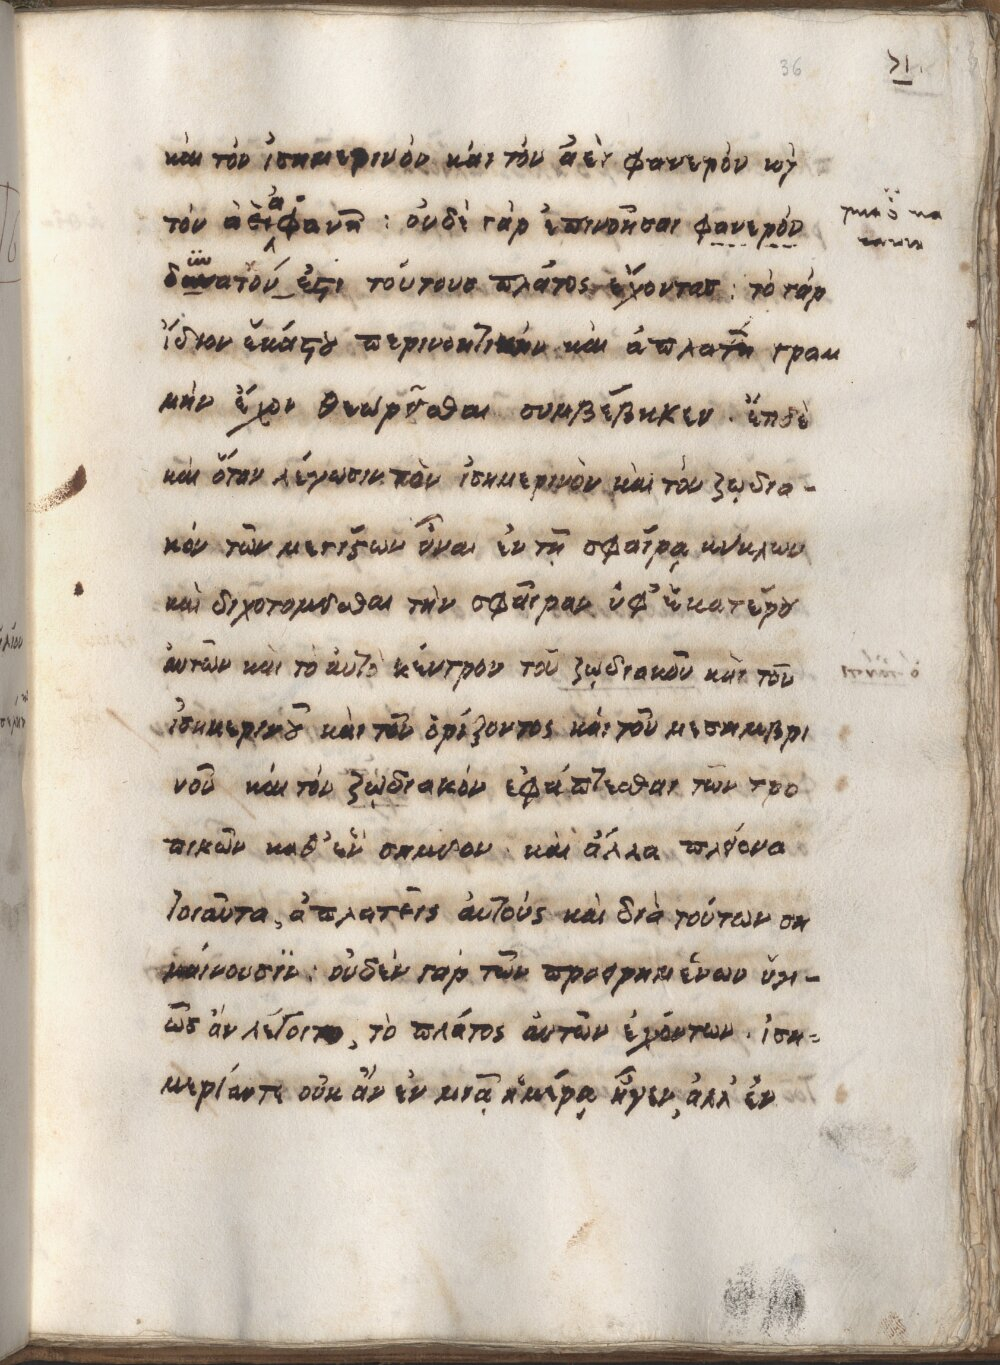 36
71
καὶ τὸν ἰσημερινὸν καὶ τὸν ἀεὶ φανερὸν καὶ
τὸν ἀεὶ ἀφανῆ : οὐδὲ γὰρ ἐπινοῆσαι φανερὸν
δυνατοῦ ἐστι τούτους πλάτος ἔχοντας : τὸ γὰρ
ἴδιον ἑκάστου περινοητικὴν καὶ ἀπλατῆ γραμ
μὴν ἔχον θεωρεῖσθαι συμβέβηκεν . ἔπειδὲ
καὶ ὅταν λέγωσιν τὸν ἰσημερινὸν καὶ τὸν ζῳδια -
κὸν τῶν μεγίστων εἶναι ἐν τῇ σφαίρᾳ κύκλων
καὶ διχοτομεῖσθαι τὴν σφαῖραν ὑφ' ἑκατέρου
αὐτῶν καὶ τὸ αὐτὸ κέντρον τοῦ ζῳδιακοῦ καὶ τοῦ
ἰσημερινοῦ καὶ τοῦ ὁρίζοντος καὶ τοῦ μεσημβρι
νοῦ καὶ τὸν ζῳδιακὸν ἐφάπτεσθαι τῶν τρο
πικῶν καθ' ἓν σημεῖον . καὶ ἄλλα πλείονα
τοιαῦτα, ἀπλατεῖς αὐτοὺς καὶ διὰ τούτων ση
μαίνουσϊν : οὐδὲν γὰρ τῶν προειρημένων ὑγι -
ῶς ἂν λέγοιτο, τὸ πλάτος αὐτῶν ἐχόντων . ἰση =
μερίαντε οὐκ ἂν ἐν μιᾷ ἡμέρᾳ ἦγεν, ἀλλ' ἐν